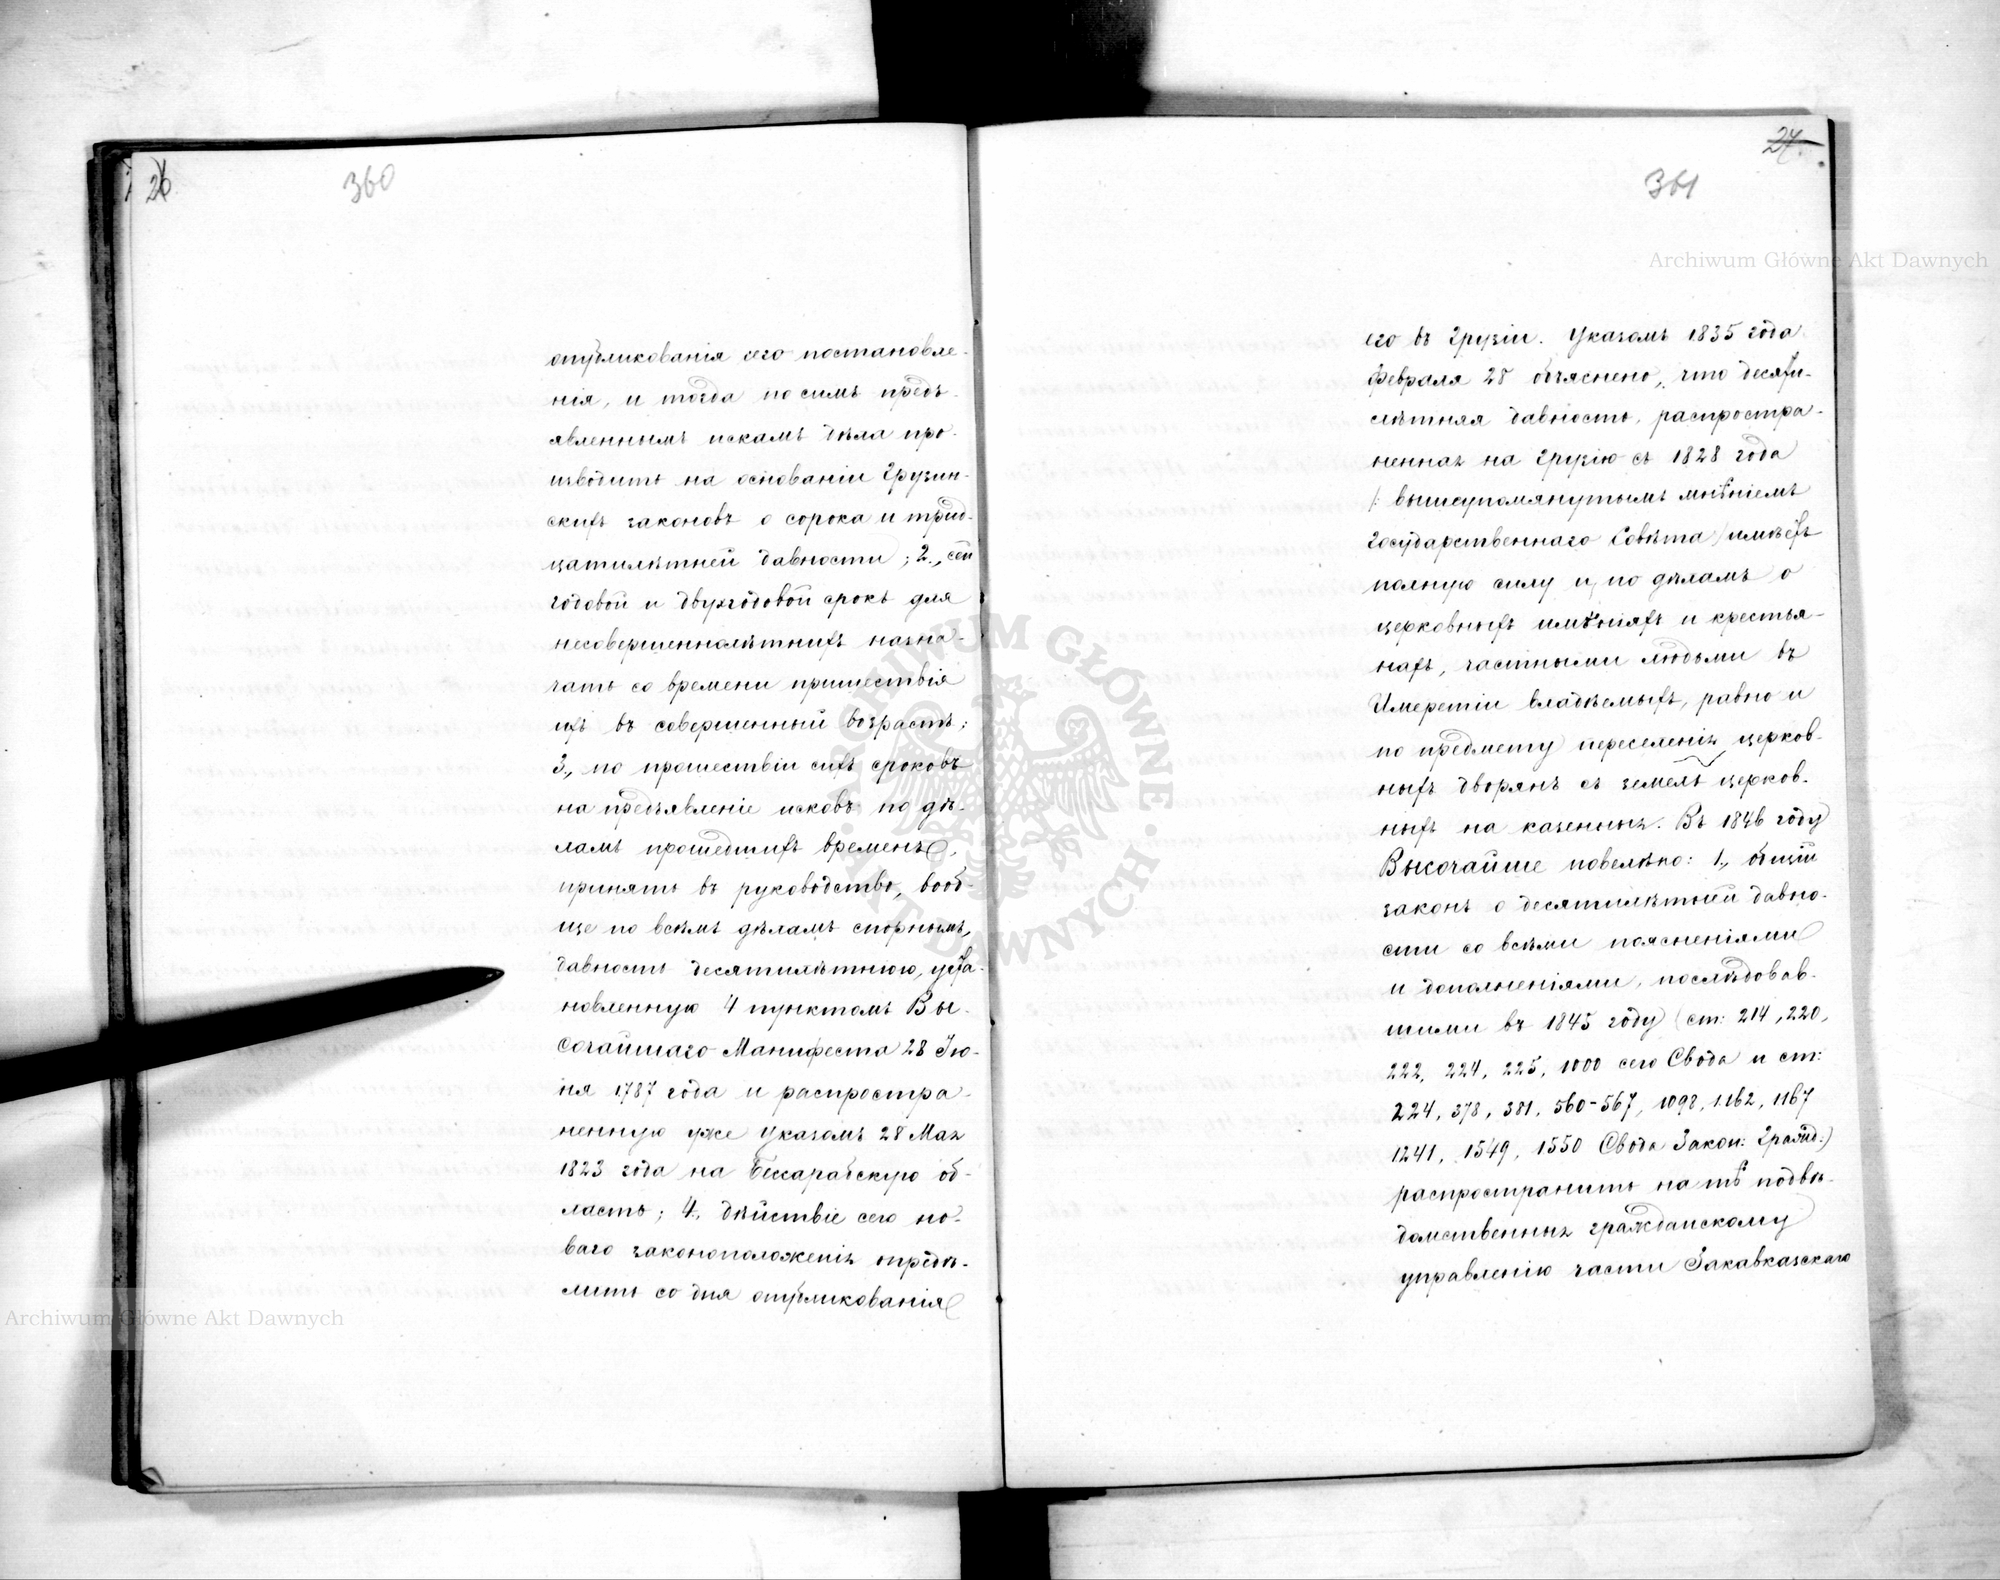 26
360
опубликованія сего постановле-
нія, и тогда по симъ предъ-
явленнымъ искамъ дѣла про-
изводить на основаніи Грузин-
скихъ законовъ о сорока и трид-
цатилѣтней давности; 2., сей
годовой и двухгодовой срокъ для
несовершеннолѣтнихъ назна-
чать со времени пришествія
ихъ въ совершенный возрастъ;
3., по прошествіи сихъ сроковъ
на предъявленіе исковъ по дѣ-
ламъ прошедшихъ временъ,
принять въ руководство, вооб-
ще по всѣмъ дѣламъ спорнымъ,
давность десятилѣтнюю, уста-
новленную 4 пунктомъ Вы-
сочайшаго Манифеста 28 Ію-
ня 1787 года и распростра-
ненную уже Указомъ 28 Мая
1823 года на Бессарабскую об-
ласть; 4., дѣйствіе сего но-
ваго законоположенія опредѣ-
лить со дня опубликованія
27.
361
его въ Грузіи. Указомъ 1835 года
Февраля 28 объяснено, что десяти-
лѣтняя давность, распростра-
ненная на Грузію съ 1828 года
/: вышеупомянутымъ мнѣніемъ
Государственнаго Совѣта / имѣетъ
полную силу и по дѣламъ о
церковныхъ имѣніяхъ и крестья-
нахъ, частными людьми въ
Имеретіи владѣемыхъ, равно и
по предмету переселенія церков-
ныхъ дворянъ съ земель церков-
ныхъ на казенныя. Въ 1846 году
Высочайше повелѣно: 1., общій
законъ о десятилѣтней давно-
сти со всѣми поясненіями
и дополненіями, послѣдовав-
шими въ 1845 году (ст: 214, 220,
222, 224, 225, 1000 сего Свода и ст:
224, 378, 381, 560-567, 1098, 1162, 1167
1241, 1549, 1550 Свода Закон: Гражд:)
распространить на тѣ подвѣ-
домственныя гражданскому
управленію части Закавказскаго
Archiwum Główne Akt Dawnych
Archiwum Główne Akt Dawnych
ARCHIWUM GŁÓWNE · AKT DAWNYCH ·